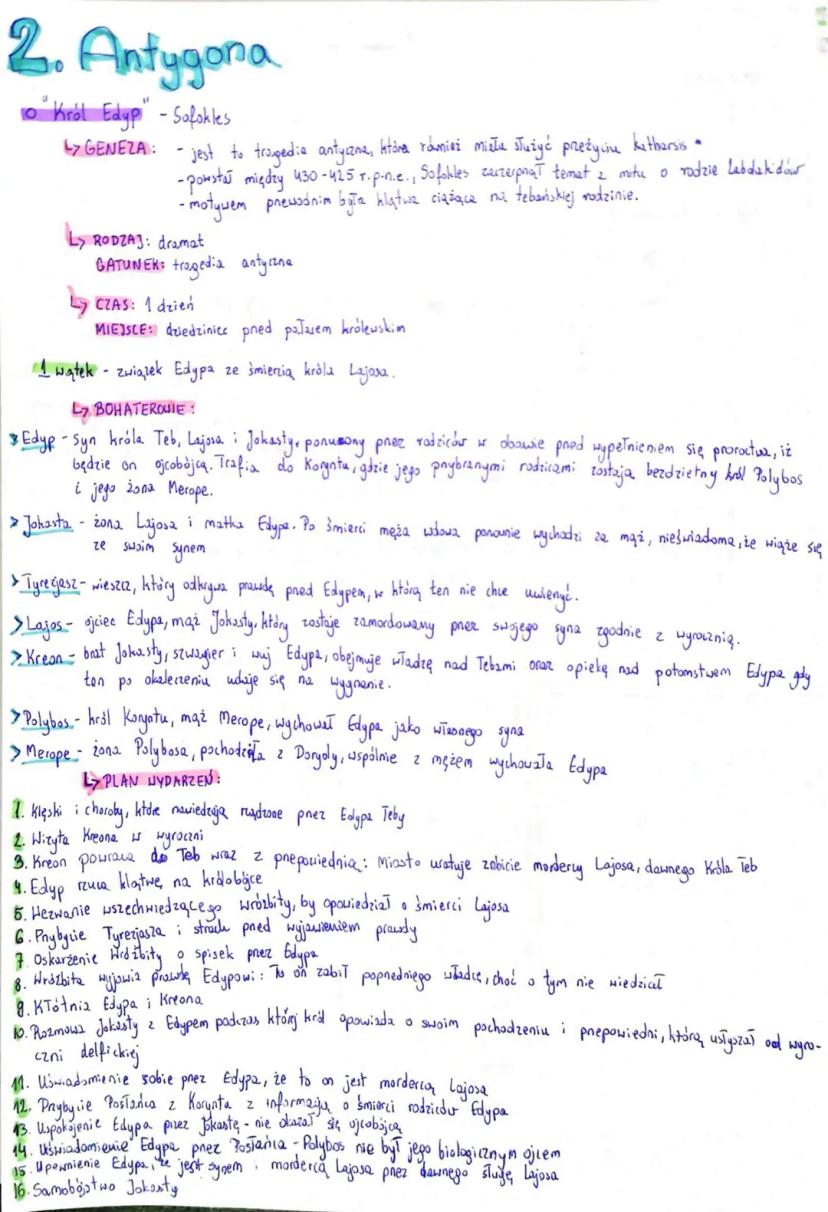 2. Antygona
o "Król Edyp" - Sofokles
↳ GENEZA: - jest to tragedia antyczna, która również miała służyć przeżyciu katharsis
- powstał między 430-425 r.p.n.e., Sofokles zaczerpnął temat z mitu o rodzie Labdakidów
- motywem przewodnim była klątwa ciążąca na tebańskiej rodzinie.
↳ RODZAJ: dramat
GATUNEK: tragedia antyczna
↳ CZAS: 1 dzień
MIEJSCE: dziedziniec przed pałacem królewskim
1 wątek - związek Edypa ze śmiercią króla Lajosa.
↳ BOHATEROWIE:
> Edyp - syn króla Teb, Lajosa i Jokasty, porzucony przez rodziców w obawie przed wypełnieniem się proroctwa, iż
będzie on ojcobójcą. Trafia do Koryntu, gdzie jego przybranymi rodzicami zostają bezdzietny król Polybos
i jego żona Merope.
> Jokasta - żona Lajosa i matka Edypa. Po śmierci męża wdowa ponownie wychodzi za mąż, nieświadoma, że wiąże się
ze swoim synem
> Tyrezjasz - wieszcz, który odkrywa prawdę przed Edypem, w którą ten nie chce uwierzyć.
> Lajos - ojciec Edypa, mąż Jokasty, który zostaje zamordowany przez swojego syna zgodnie z wyrocznią.
> Kreon - brat Jokasty, szwagier i wuj Edypa, obejmuje władzę nad Tebami oraz opiekę nad potomstwem Edypa gdy
ten po okaleczeniu udaje się na wygnanie.
> Polybos - król Koryntu, mąż Merope, wychował Edypa jako własnego syna
> Merope - żona Polybosa, pochodziła z Dorydy, wspólnie z mężem wychowała Edypa
↳ PLAN WYDARZEŃ:
1. Klęski i choroby, które nawiedzają rządzone przez Edypa Teby
2. Wizyta Kreona w wyroczni
3. Kreon powraca do Teb wraz z przepowiednią: Miasto uratuje zabicie mordercy Lajosa, dawnego Króla Teb
4. Edyp rzuca klątwę na królobójcę
5. Wezwanie wszechwiedzącego wróżbity, by opowiedział o śmierci Lajosa
6. Przybycie Tyrezjasza i strach przed wyjawieniem prawdy
7. Oskarżenie Wróżbity o spisek przez Edypa
8. Wróżbita wyjawia prawdę Edypowi: To on zabił poprzedniego władcę, choć o tym nie wiedział
9. Kłótnia Edypa i Kreona
10. Rozmowa Jokasty z Edypem podczas której król opowiada o swoim pochodzeniu i przepowiedni, którą usłyszał od wyro-
czni delfickiej
11. Uświadomienie sobie przez Edypa, że to on jest mordercą Lajosa
12. Przybycie Posłańca z Koryntu z informacją o śmierci rodziców Edypa
13. Uspokojenie Edypa przez Jokastę - nie okazał się ojcobójcą
14. Uświadomienie Edypa przez Posłańca - Polybos nie był jego biologicznym ojcem
15. Upewnienie Edypa, że jest synem i mordercą Lajosa przez dawnego sługę Lajosa
16. Samobójstwo Jokasty